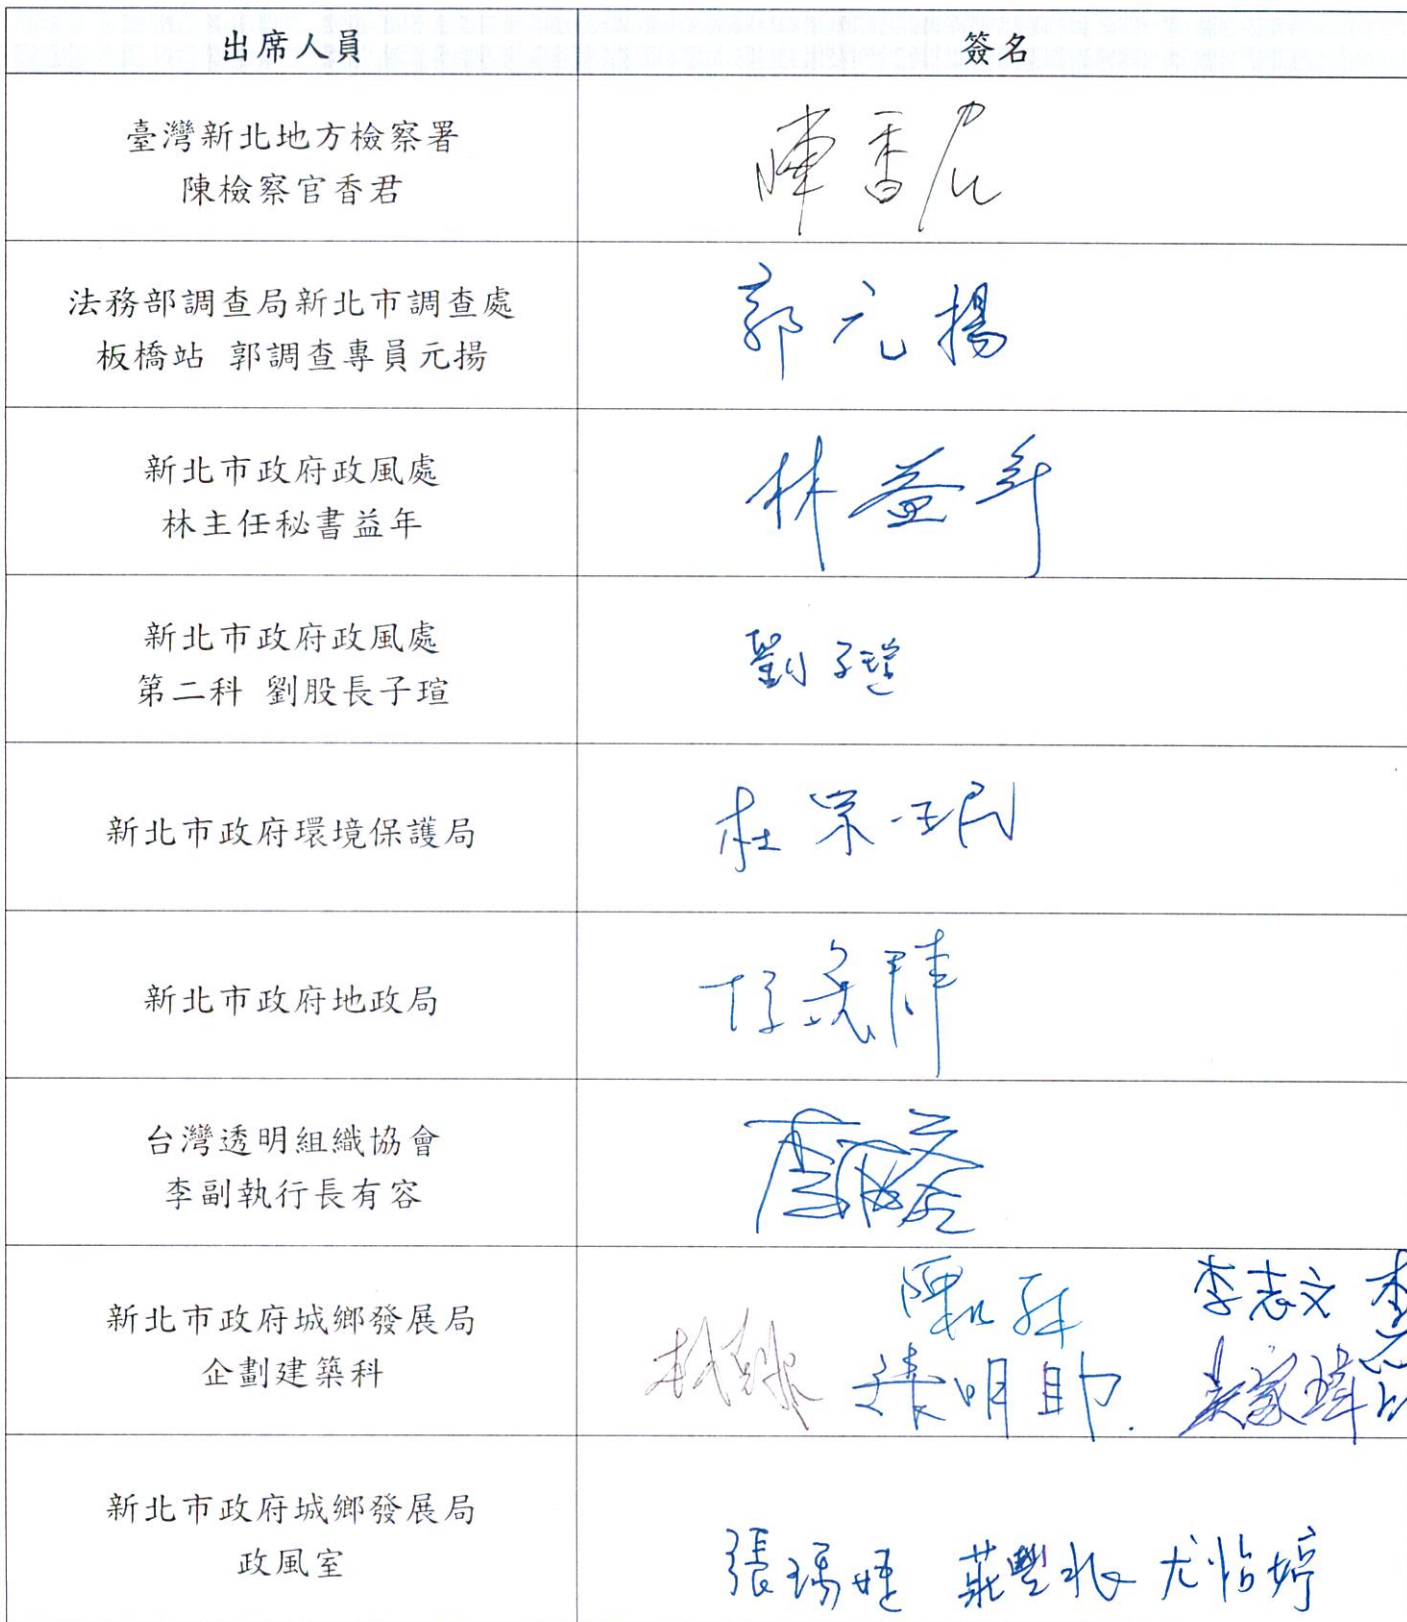 出席人員
簽名
臺灣新北地方檢察署
陳檢察官香君
陳香君
法務部調查局新北市調查處
板橋站 郭調查專員元揚
郭元揚
新北市政府政風處
林主任秘書益年
林益年
新北市政府政風處
第二科 劉股長子瑄
劉子瑄
新北市政府環境保護局
杜榮珉
新北市政府地政局
台灣透明組織協會
李副執行長有容
李有容
新北市政府城鄉發展局
企劃建築科
李志文
張明勛
新北市政府城鄉發展局
政風室
尤怡婷